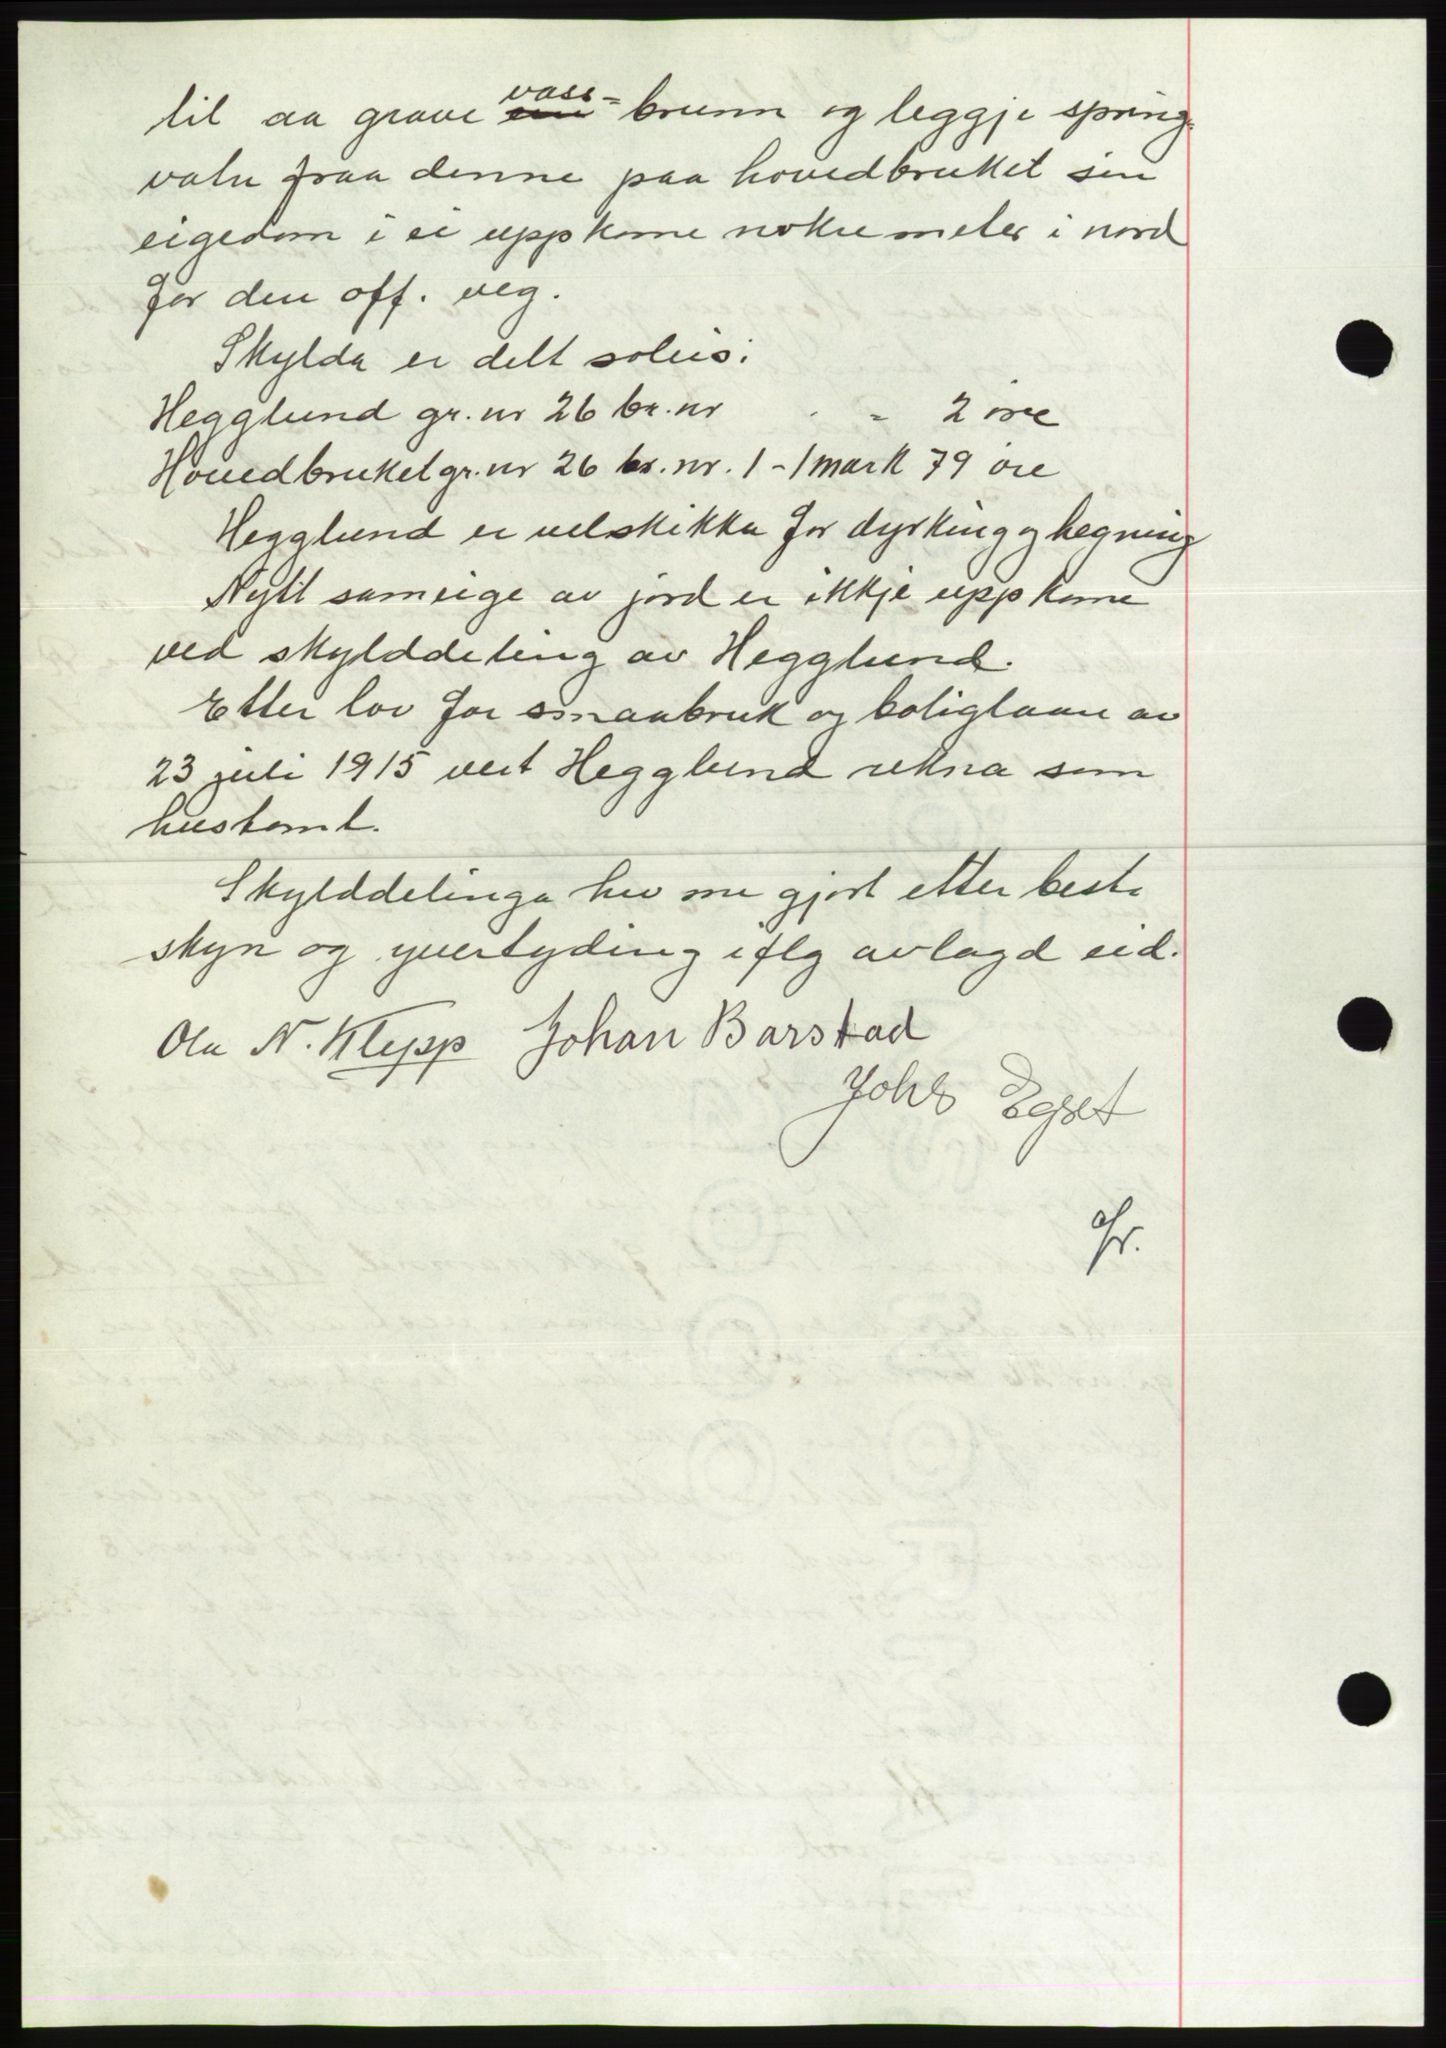 til aa grave vass-brunn og leggje spring-
vatn fraa denne paa hovedbruket sin
eigedom i ei uppkome nokre meter i nord
for den off. veg.
Skylda er delt soleis:
Hegglund gr. nr 26 br. nr - 2 øre
Hovedbruket gr. nr 26 br. nr. 1 - 1 mark 79 øre
Hegglund er velskikka for dyrking og hegning
Nytt sameige av jord er ikkje uppkome
ved skylddeling av Hegglund.
Etter lov for smaabruk og boliglaan av
23 juli 1915 vert Hegglund rekna som
hustomt.
Skylddelinga hev me gjort etter beste
skyn og yvertyding iflg avlagd eid.
Ola N. Klepp Johan Barstad
Johs Egset